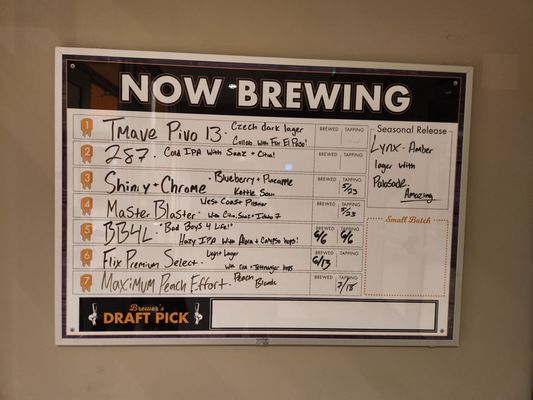 NOW BREWING
1 Tmave Pivo 13. Czech dark lager
Collab with For El Paso!
BREWED TAPPING
2 287. Cold IPA with Saaz + Citra!
BREWED TAPPING
3 Shiny + Chrome • Blueberry + Pineapple
Kettle Sour
BREWED TAPPING
5/23
4 Master Blaster • West Coast Pilsner
with Citra, Saaz + Idaho 7
BREWED TAPPING
5/23
5 BB4L. "Bad Boys 4 Life!"
Hazy IPA with Alora + Calypso hops!
BREWED TAPPING
6/6 6/6
6 Flix Premium Select. Light Lager
with Cara + Tettnanger hops
BREWED TAPPING
6/13
7 Maximum Peach Effort. Peach
Blonde
BREWED TAPPING
7/18
Seasonal Release
Lynx - Amber
lager with
Amazing
Small Batch
Brewer's
DRAFT PICK